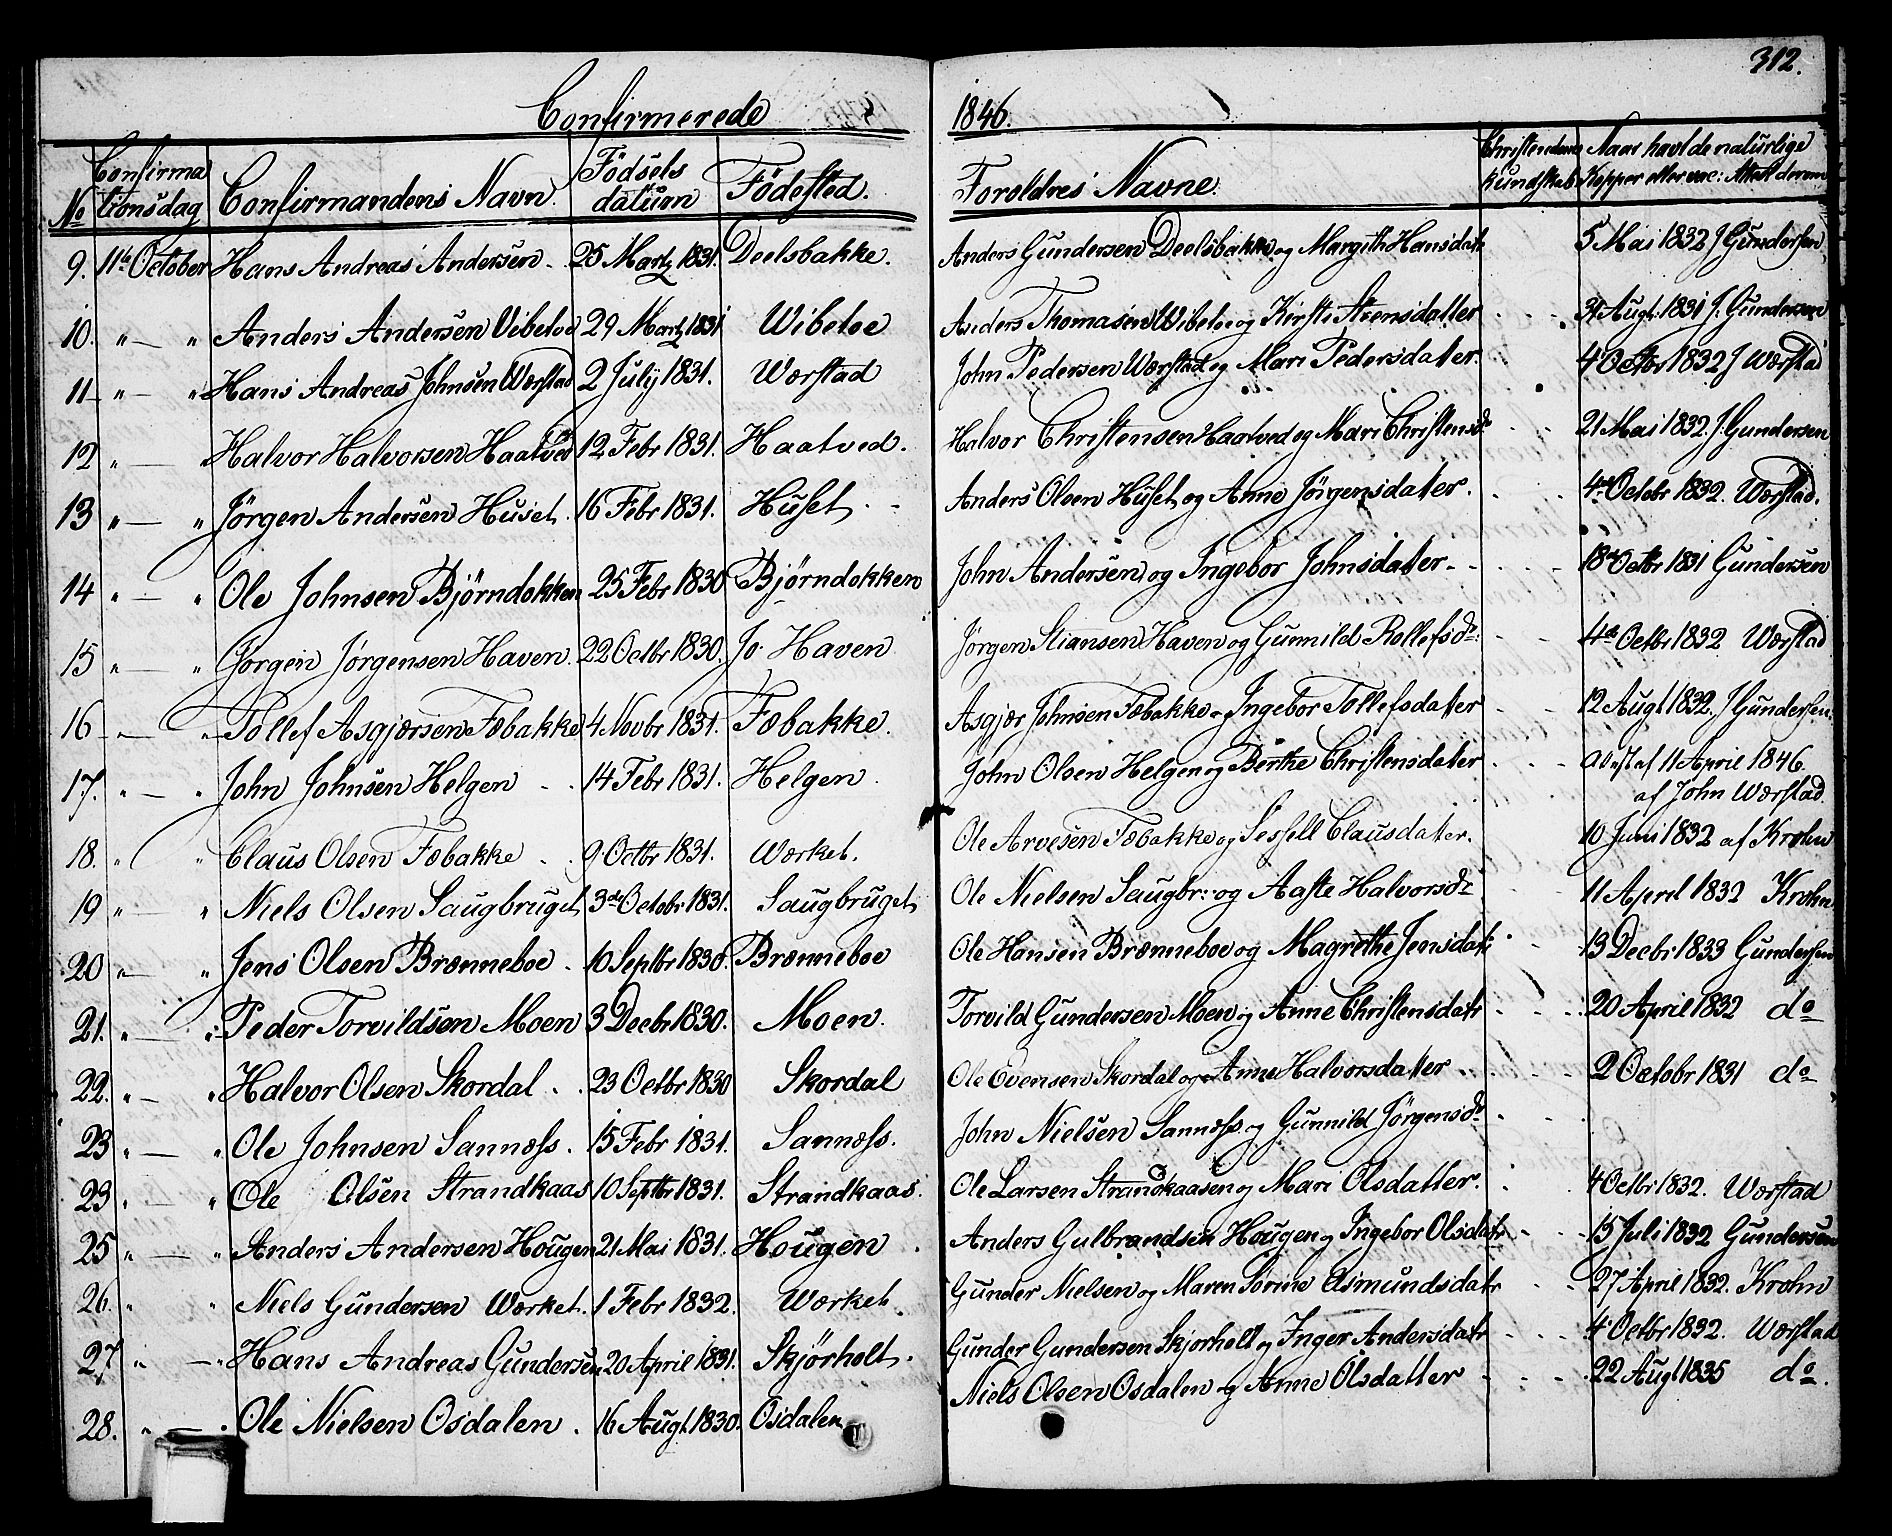 312.
Confirmerede 1846.
No Confirmationsdag Confirmandens Navn. Födsels datum Födested. Foroldres Navne. Christendoms kundskab Naar havt de naturlige Kopper eller vac: Attest derom
9. 11te October Hans Andreas Andersen. 25 Martz 1831. Deelsbakke. Anders Gundersen Deelsbakke og Margith Hansdatr 5 Mai 1832 J Gundersen
10. " — " Anders Andersen Vibetoe 29 Martz 1831 Wibetoe Anders Thomasen Wibetoe og Kirsti Steensdatter 31 Augt. 1831 J. Gundersen
11 " — " Hans Andreas Johnsen Wærstad 2 Julij 1831. Wærstad John Pedersen Wærstad og Mari Pedersdater. 4 Octbr 1832 J Wærstad
12 " — " Halvor Halvorsen Haatved 12 Febr 1831. Haatved. Halvor Christensen Haatved og Mari Christensdr 21 Mai 1832. J. Gundersen
13 " — " Jörgen Andersen Huset. 16 Febr 1831. Huset. Anders Olsen Huset og Anne Jörgensdater. 4de Octobr 1832. Wærstad.
14 " — " Ole Johnsen Bjørndokken 25 Febr 1830 Bjørndokken John Andersen og Ingebor Johnsdatter 18de Octbr 1831 Gundersen
15 " — " Jörgen Jörgensen Haven. 22 Octbr 1830. Jo. Haven Jörgen Stiansen Haven og Gunnild Rollefsdr: 4de Octbr 1832 Wærstad
16 " — " Tollef Asgjærsen Fæbakke 4 Novbr 1831. Fæbakke. Asgjær Johnsen Fæbakke og Ingebor Tollefsdater 12 Augt 1832. J Gundersen.
17. " — " John Johnsen Helgen 14 Febr 1831. Helgen. John Olsen Helgen og Birthe Christensdater 11 April 1846.
af John Wærstad
18. " " Claus Olsen Fæbakke 9 Octbr 1831. Wærket. Ole Arvesen Fæbakke og Sessell Clausdater. 10 Juni 1832 af Krohn
19 " — " Niels Olsen Saugbruget 3de Octobr 1831. Saugbruget Ole Nielsen Saugbr: og Aaste Halvorsdr 11 April 1832 Krohn
20 " — " Jens Olsen Brønneboe. 10 Septbr 1830. Brønneboe Ole Hansen Brønneboe og Magrethe Jensdatr 13 Decbr 1833 Gundersen
21. " — " Peder Torvildsen Moen 3 Decbr 1830. Moen. Torvild Gundersen Moen og Anne Christensdatr 20 April 1832 do
22. " — " Halvor Olsen Skordal 23 Octbr 1830 Skordal Ole Evensen Skordal og Anne Halvorsdatter 2 Octobr 1831 do
23 " — " Ole Johnsen Sannæss. 15 Febr 1831. Sannæss. John Nielsen Sannæss og Gunnild Jörgensdr
23 " " Ole Olsen Strandkaas 10 Septbr 1831. Strandkaas. Ole Larsen Strandkaasen og Mari Olsdatter. 4 Octbr 1832. Wærstad
25 " — " Anders Andersen Hougen 21 Mai 1831. Hougen Anders Gulbrandsen Hougen og Ingebor Olsdatr 15 Juli 1832 Gundersen
26. " " Niels Gundersen Wærket. 1 Febr 1832. Wærket. Gunder Nielsen og Maren Sørine Osmundsdatr 27 April 1832. Krohn
27 " — " Hans Andreas Gundersen 20 April 1831. Skjörholt. Gunder Gundersen Skjorholt og Inger Andersdatr 4 Octbr 1832. Wærstad
28. " — " Ole Nielsen Osdalen. 16 Augt. 1830. Osdalen Niels Olsen Osdalen og Anne Olsdatter 22 Augt 1835 do.